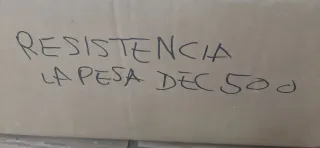 RESISTENCIA
LA PESA DEC 500